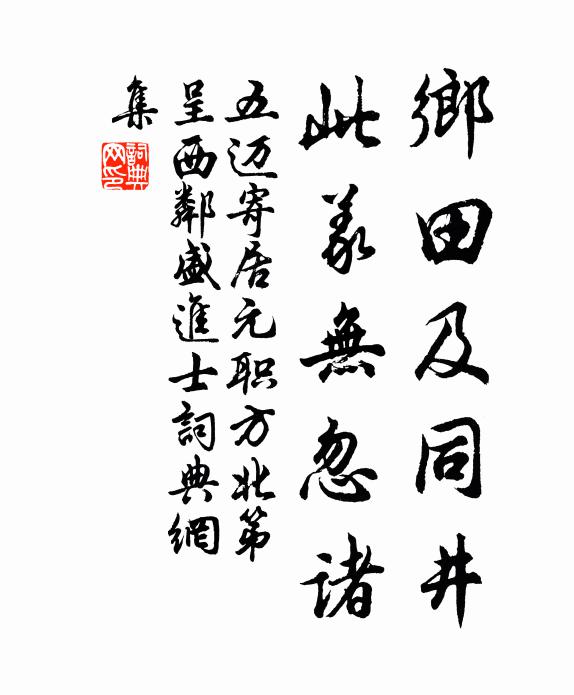 鄉田及同井
此義無忽诸
五迈寄居元职方北第
呈西鄰盛進士詞典網
集
詞典
网印